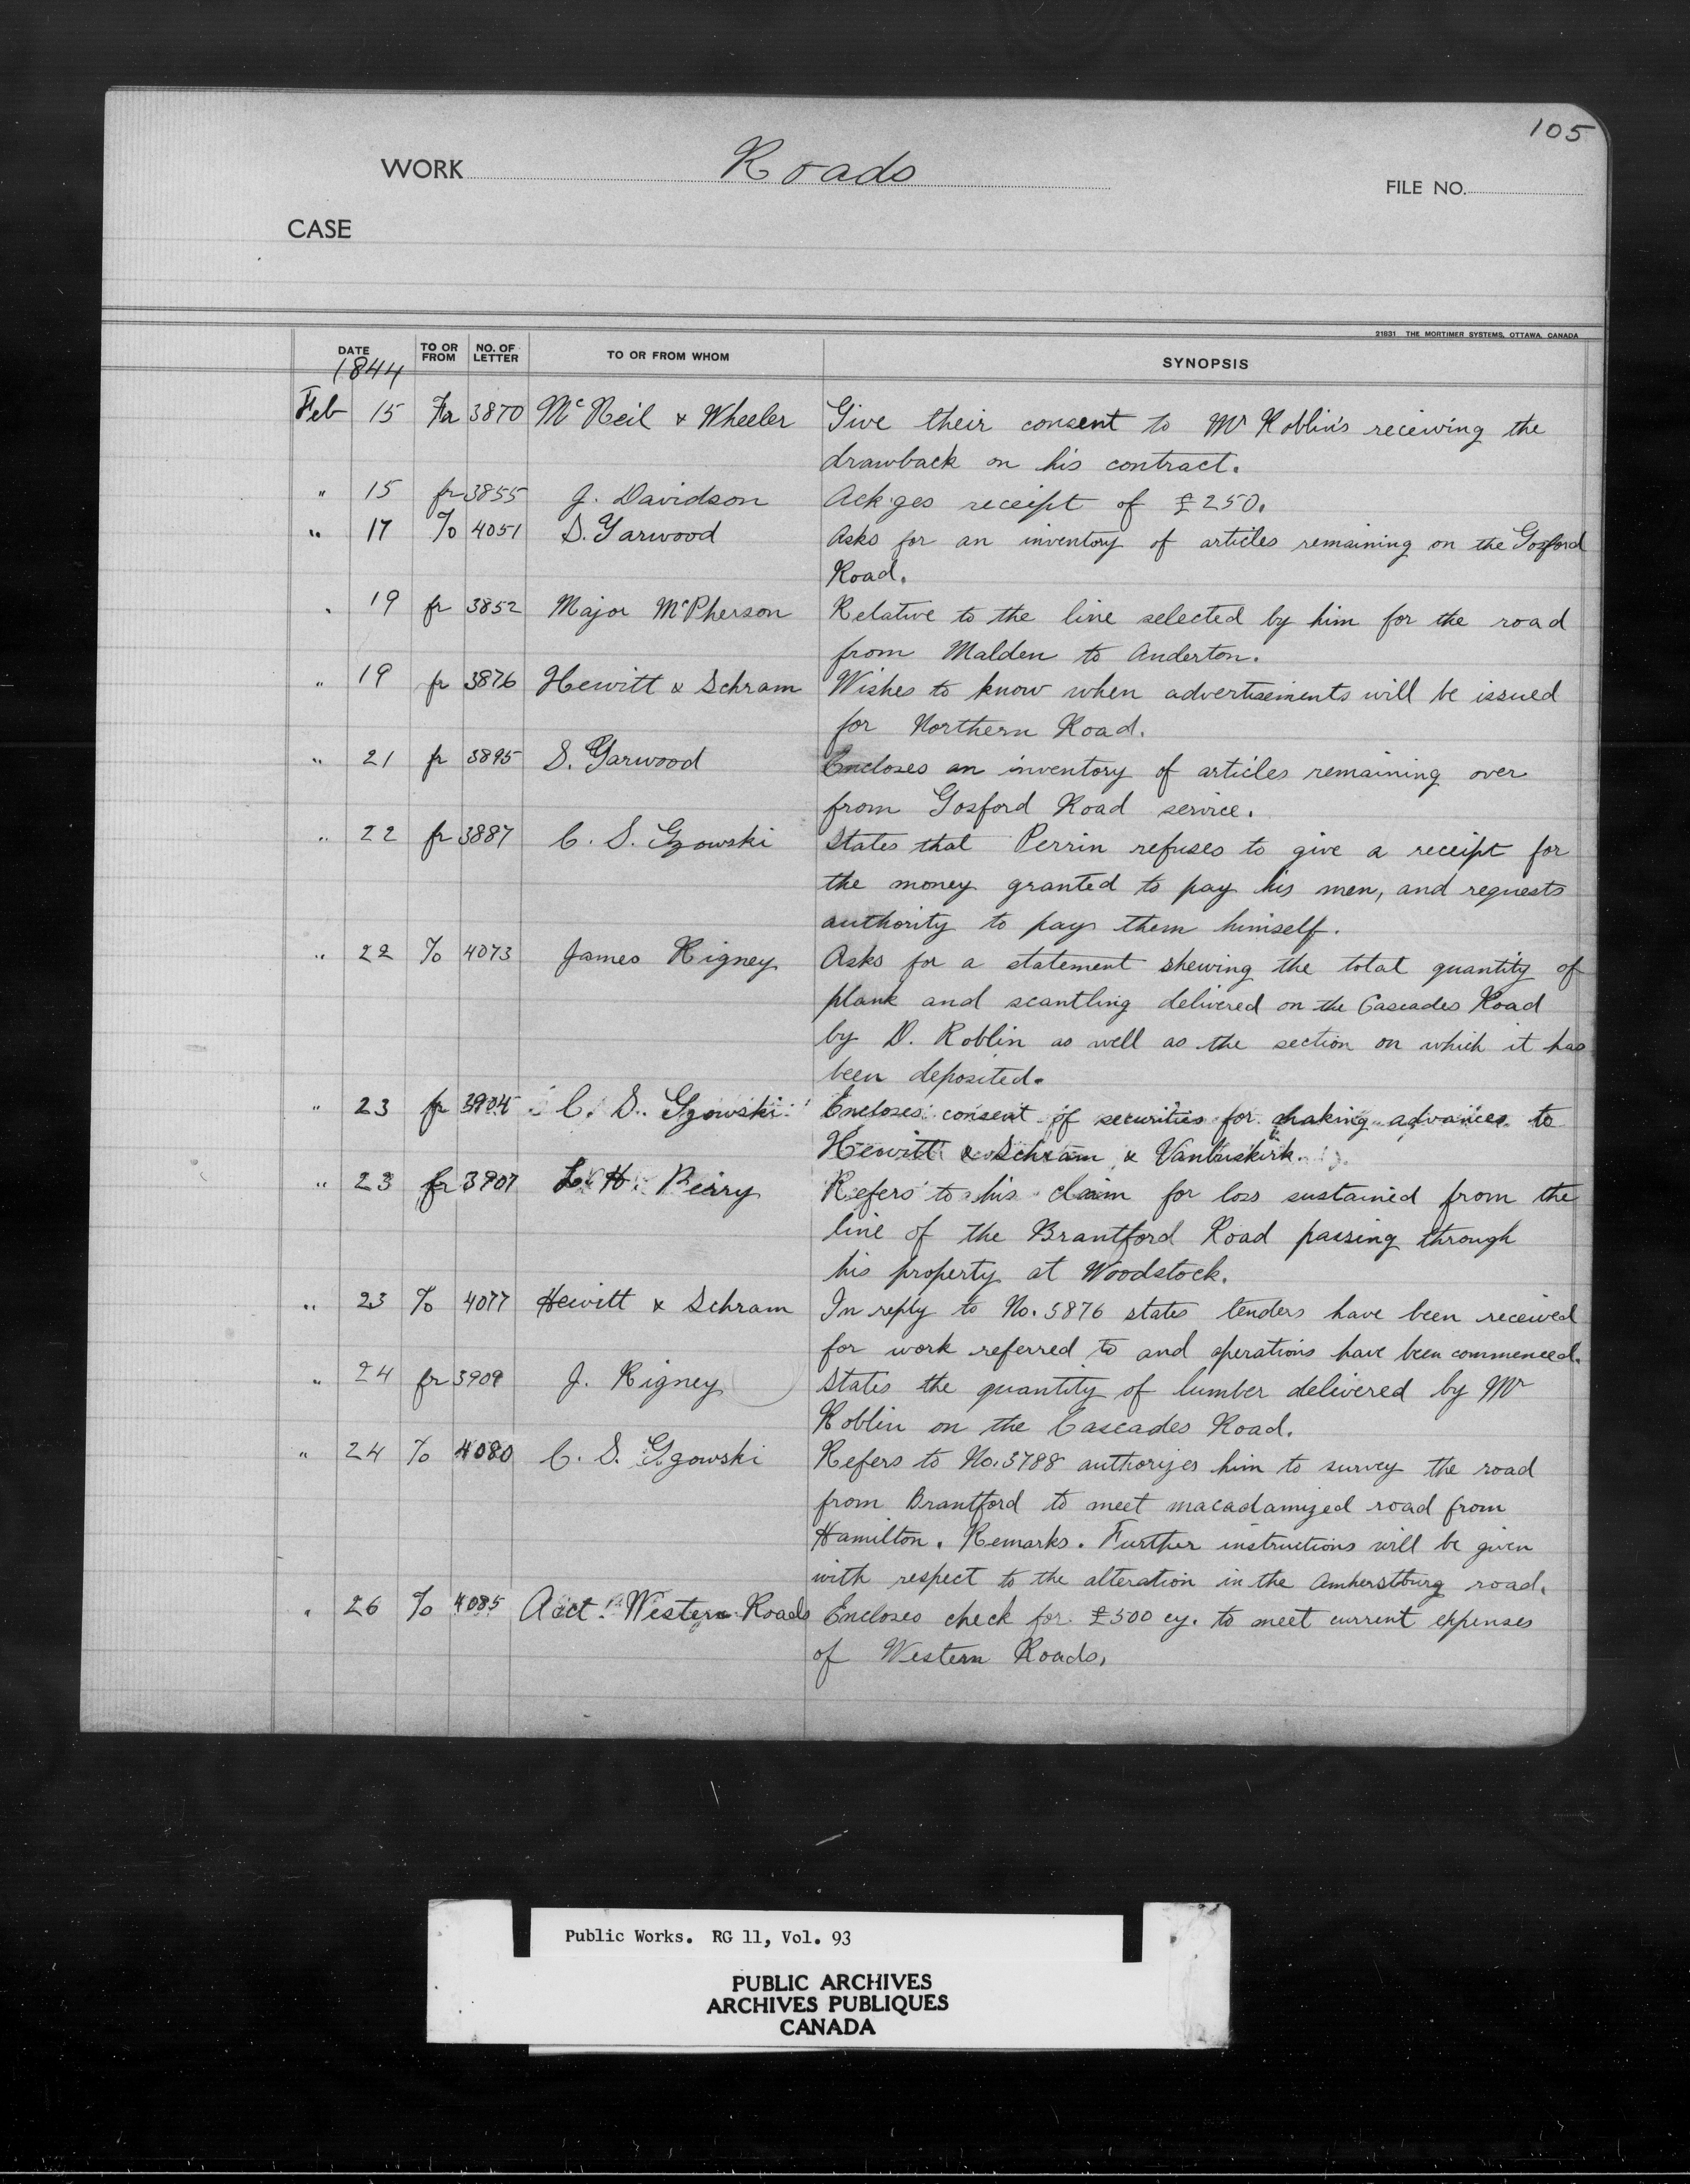 105
WORK Roads
FILE NO.
CASE
21831 THE MORTIMER SYSTEMS, OTTAWA, CANADA
DATE TO OR FROM NO. OF LETTER TO OR FROM WHOM SYNOPSIS
1844
Feb 15 Fr 3870 McNeil & Wheeler Give their consent to Mr Roblin's receiving the
drawback on his contract.
" 15 fr 3855 J. Davidson Ack'ges receipt of £250.
" 17 To 4051 S. Garwood Asks for an inventory of articles remaining on the Gosford
Road.
" 19 fr 3852 Major McPherson Relative to the line selected by him for the road
from Malden to Anderton.
" 19 fr 3876 Hewitt & Schram Wishes to know when advertisements will be issued
for Northern Road.
" 21 fr 3895 S. Garwood Encloses an inventory of articles remaining over
from Gosford Road service.
" 22 fr 3887 C. S. Gzowski States that Perrin refuses to give a receipt for
the money granted to pay his men, and requests
authority to pay them himself.
" 22 To 4073 James Rigney Asks for a statement shewing the total quantity of
plank and scantling delivered on the Cascades Road
by D. Roblin as well as the section on which it has
been deposited.
" 23 fr 3904 C. S. Gzowski Encloses consent of securities for making advances to
Hewitt & Schram & Vanbuskirk.
" 23 fr 3907 L. H. Perry Refers to his claim for loss sustained from the
line of the Brantford Road passing through
his property at Woodstock.
" 23 To 4077 Hewitt & Schram In reply to No. 3876 states tenders have been received
for work referred to and operations have been commenced.
" 24 fr 3909 J. Rigney States the quantity of lumber delivered by Mr
Roblin on the Cascades Road.
" 24 To 4080 C. S. Gzowski Refers to No. 3788 authorizes him to survey the road
from Brantford to meet macadamized road from
Hamilton. Remarks. Further instructions will be given
with respect to the alteration in the Amherstburg road.
" 26 To 4085 Acct. Western Roads Encloses check for £500 cy. to meet current expenses
of Western Roads.
Public Works. RG 11, Vol. 93
PUBLIC ARCHIVES
ARCHIVES PUBLIQUES
CANADA